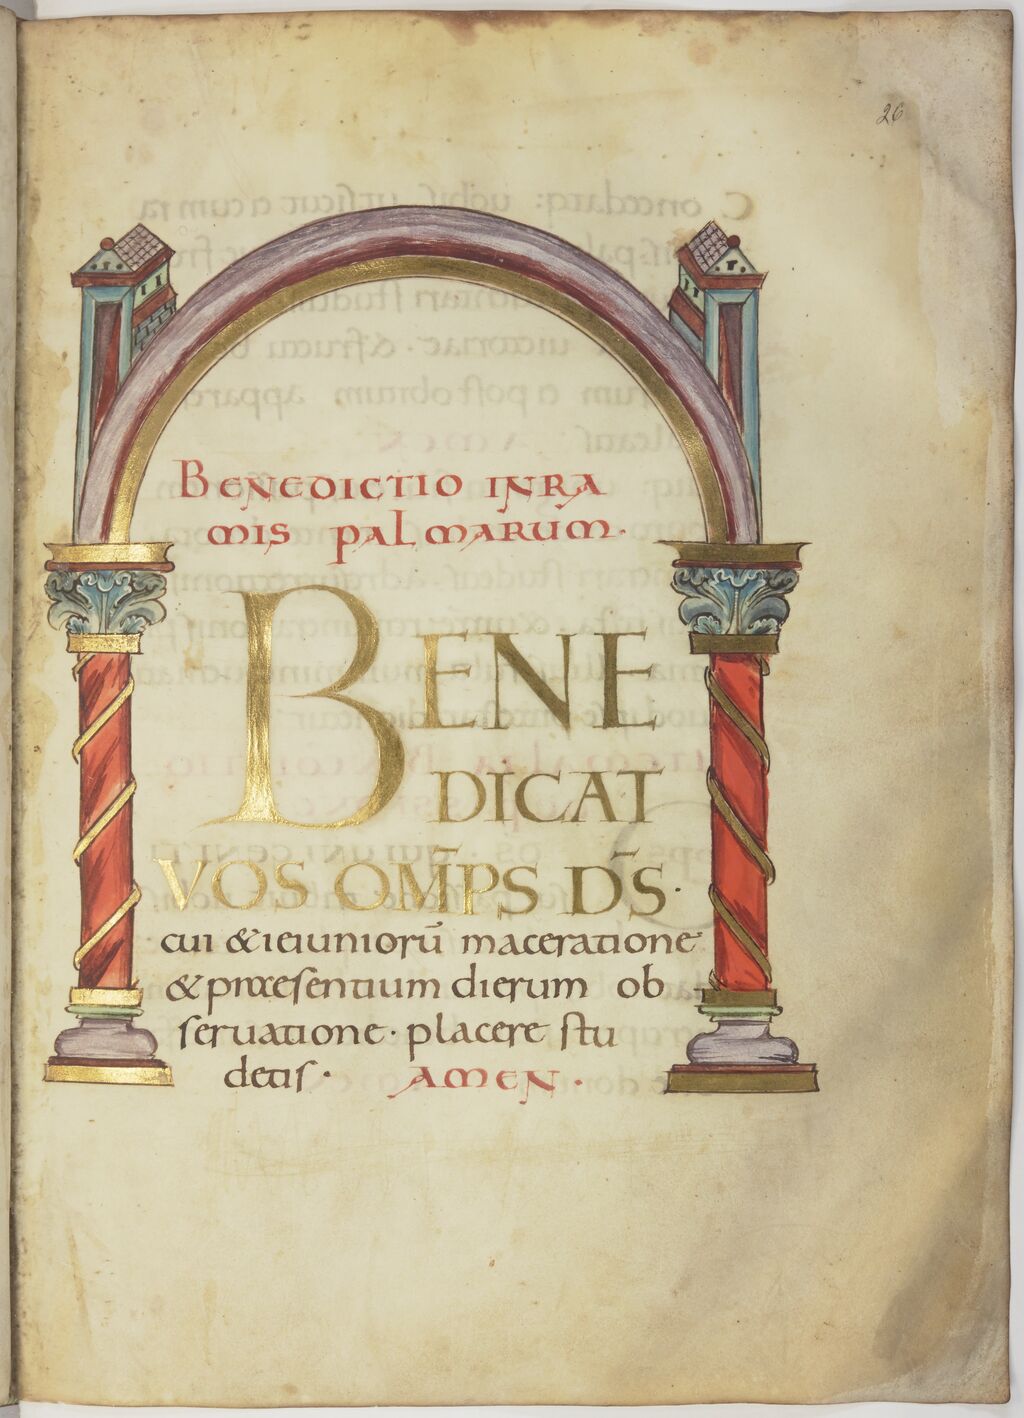 26
BENEDICTIO INRA
MIS PALMARUM·
BENE
DICAT
VOS OM̅PS D̅S·
cui & ieiuniorū maceratione
& praesentium dierum ob
seruatione· placere stu
detis· AMEN·